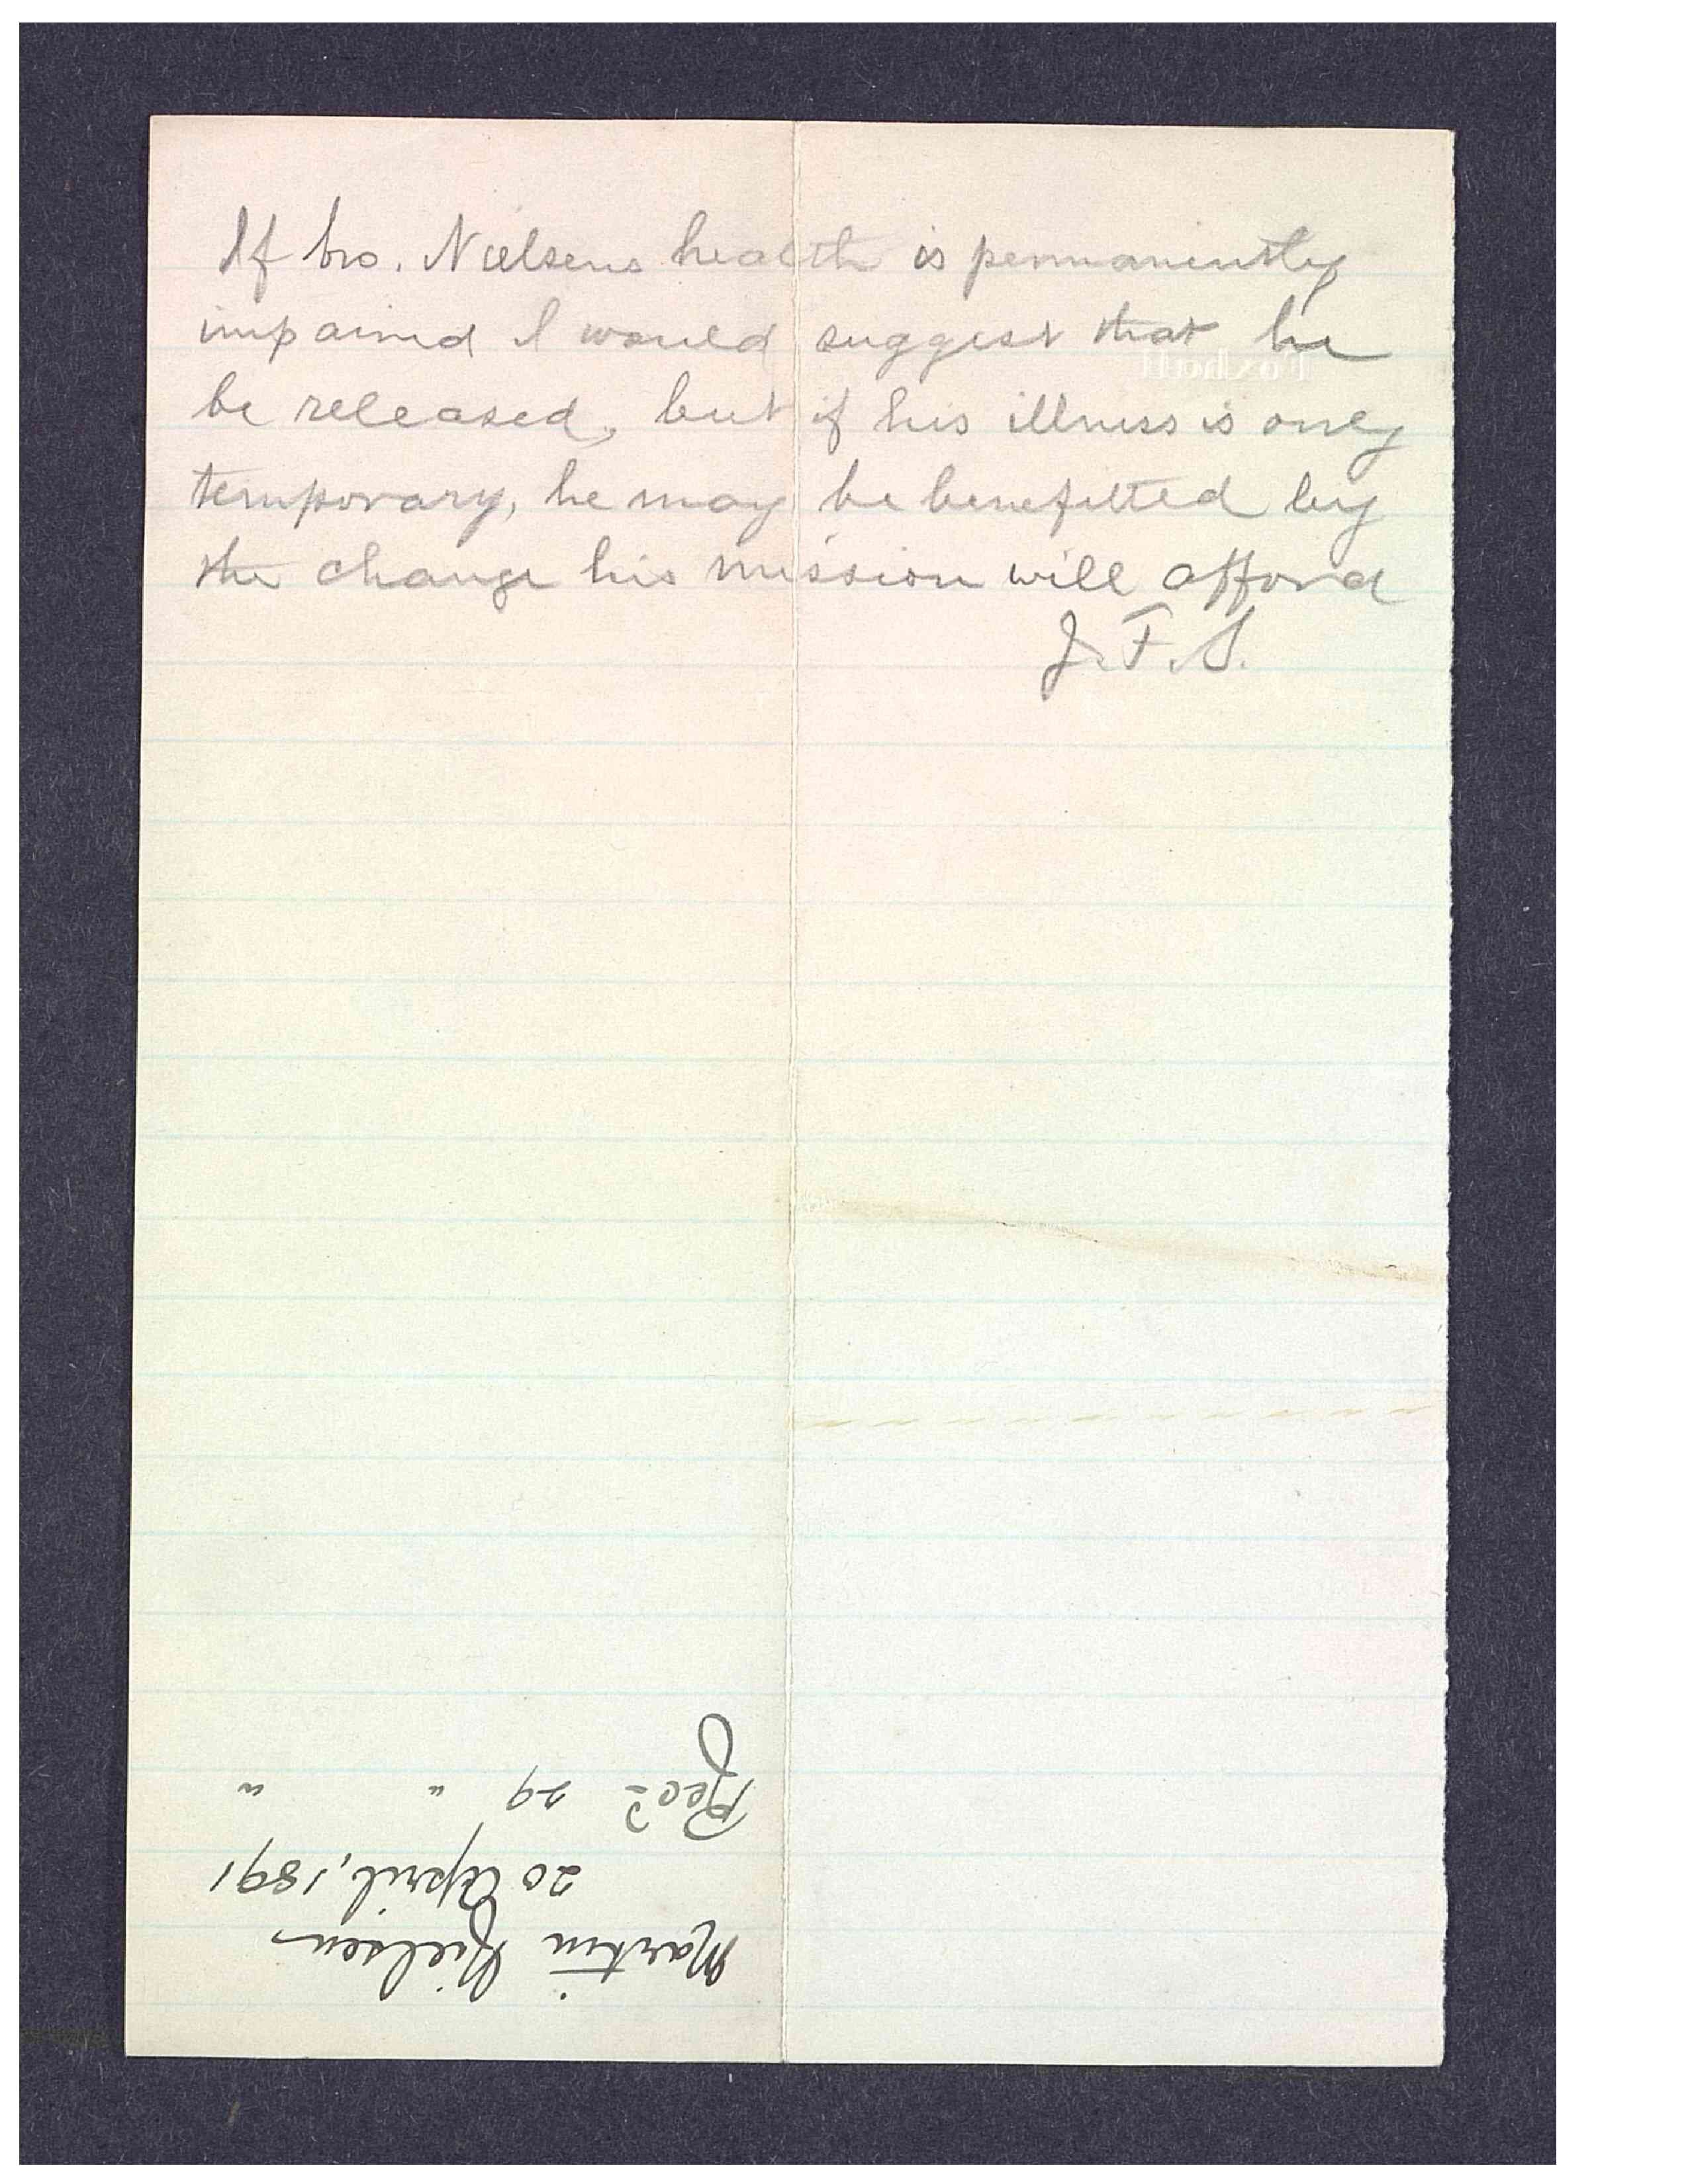 If bro. Nielsens health is permanently
impaired I would suggest that he
be released, but if his illness is only
temporary, he may be benefitted by
the change his mission will afford
J. F. S.
Martin Nielsen
20 April, 1891
Recd 29 " "